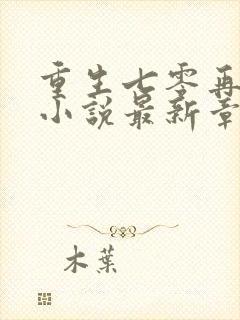 重生七零再
小说最新章
木葉